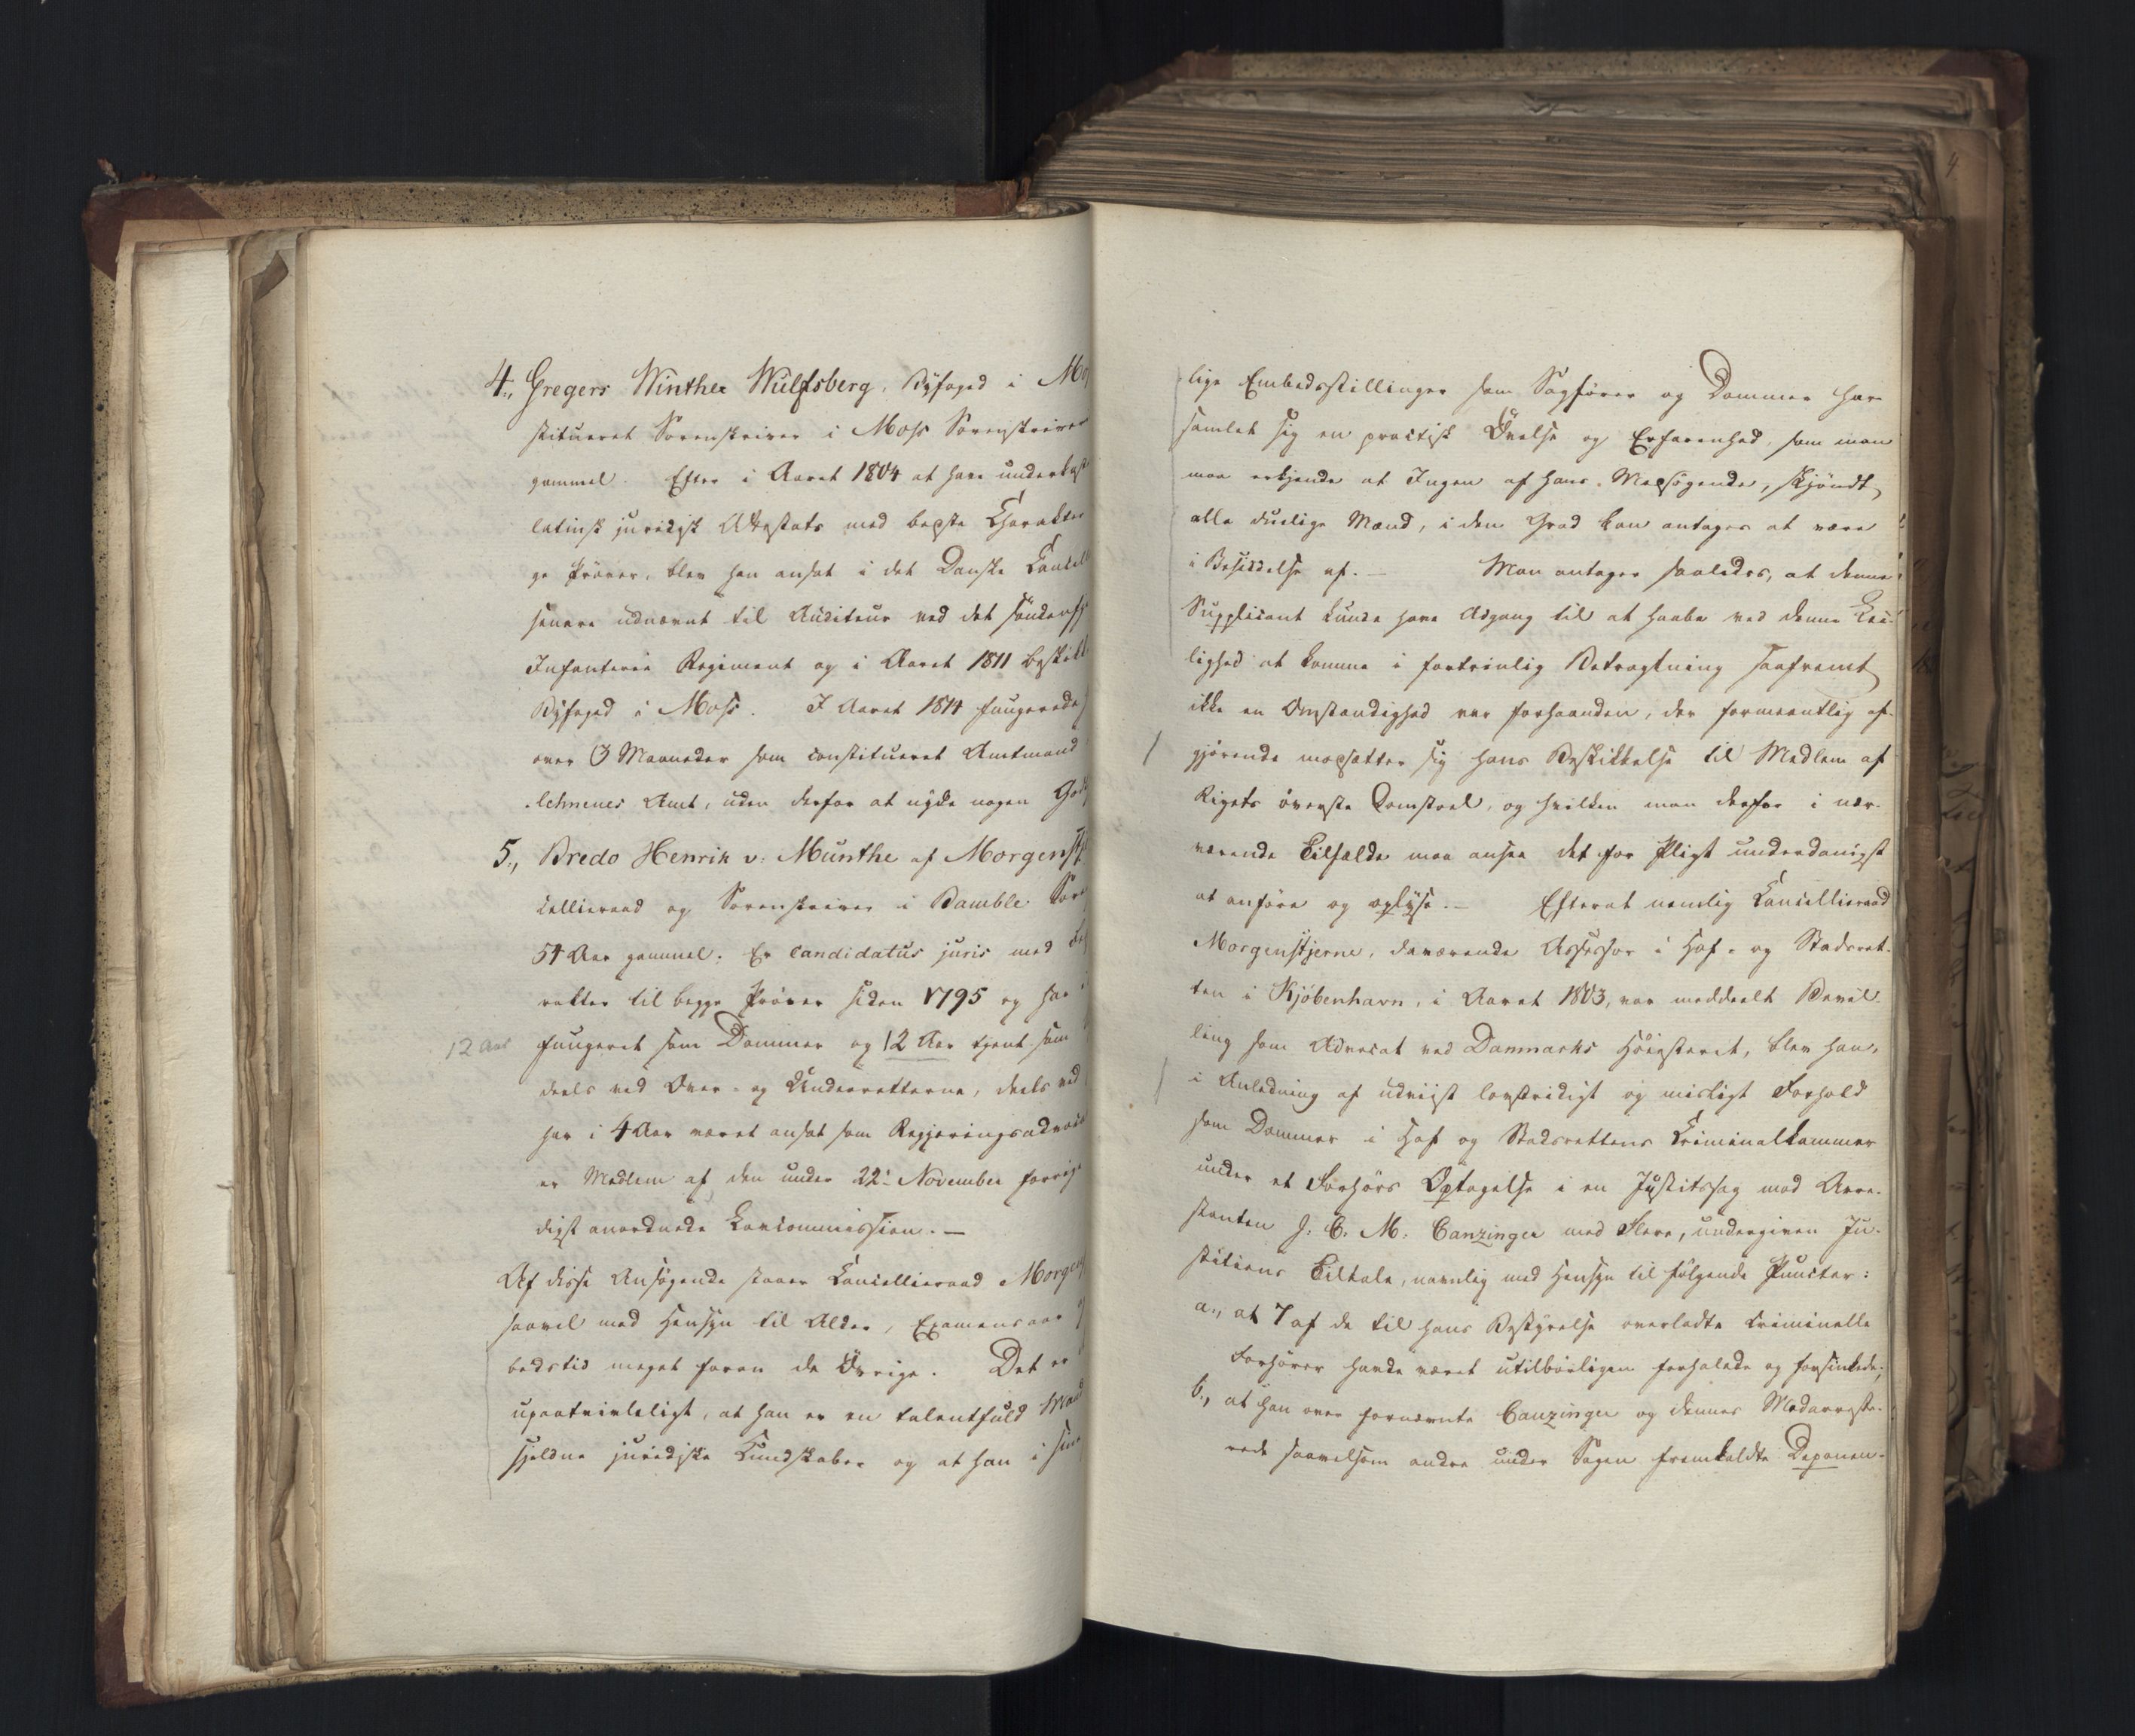 4., Gregers Winther Wulfsberg, Byfoged i Mo
stitueret Sorenskriver i Moss Sorenskriver
gammel. Efter i Aaret 1804 at have underkaste
latinsk juridisk Attestats med beste Charakter
ge Prøver, blev han ansat i det Danske Cancell
senere udnævnt til Auditeur ved det søndenfj
Infanterie Regiment og i Aaret 1811 beskikk
Byfoged i Moss. I Aaret 1814 fungerede
over 3 Maaneder som constitueret Amtmand
lehnenes Amt, uden derfor at nyde nogen God
5., Bredo Henrik v: Munthe af Morgenstj
cellieraad og Sorenskriver i Bamble Sor
54 Aar gammel. Er candidatus juris med
rakter til begge Prøver siden 1795 og har
12 Aar
fungeret som Dommer og 12 Aar tjent som
deels ved Over- og Underretterne, deels ved
har i 4 Aar været ansat som Regjeringsadvoca
er Medlem af den under 22: November forrige
digst anordnede Lovcommission. —
Af disse Ansøgende staaer Cancellieraad Morgen
saavel med Hensyn til Alder, Examensaar
bedstid meget foran de Øvrige. Det er
upaatvivleligt, at han er en talentfuld Mand
sjeldne juridiske Kundskaber og at han i sine
lige Embedsstillinger som Sagfører og Dommer har
samlet sig en practisk Øvelse og Erfarenhed, som man
maa erkjende at Ingen af hans Medsøgende, skjøndt
alle duelige Mænd, i den Grad kan antages at være
i Besiddelse af. — Man antager saaledes, at denne
Supplicant kunde have Adgang til at haabe ved denne Lei-
lighed at komme i fortrinlig Betragtning saafremt
ikke en Omstændighed var forhaanden, der formeentlig af-
gjørende modsætter sig hans Beskikkelse til Medlem af
Rigets øverste Domstoel, og hvilken man derfor i nær-
værende Tilfælde maa ansee det for Pligt underdanigst
at anføre og oplyse. — Efterat nemlig Cancellieraad
Morgenstjerne, daværende Assessor i Hof- og Stadsret-
ten i Kjøbenhavn, i Aaret 1803, var meddeelt Bevil-
ling som Advocat ved Danmarks Høiesteret, blev han,
i Anledning af udviist lovstridigt og misligt Forhold
som Dommer i Hof og Stadsrettens Criminalkammer
under et Forhørs Optagelse i en Justitssag mod Arre-
stanten J. C. M. Canzinger med Flere, undergiven Ju-
stitiens Tiltale, navnlig med Hensyn til følgende Puncter:
a., at 7 af de til hans Bestyrelse overladte criminelle
Forhører havde været utilbørligen forhalede og forsinkede;
b., at han over fornævnte Canzinger og dennes Medarreste-
rede saavelsom andre under Sagen fremkaldte Deponen-